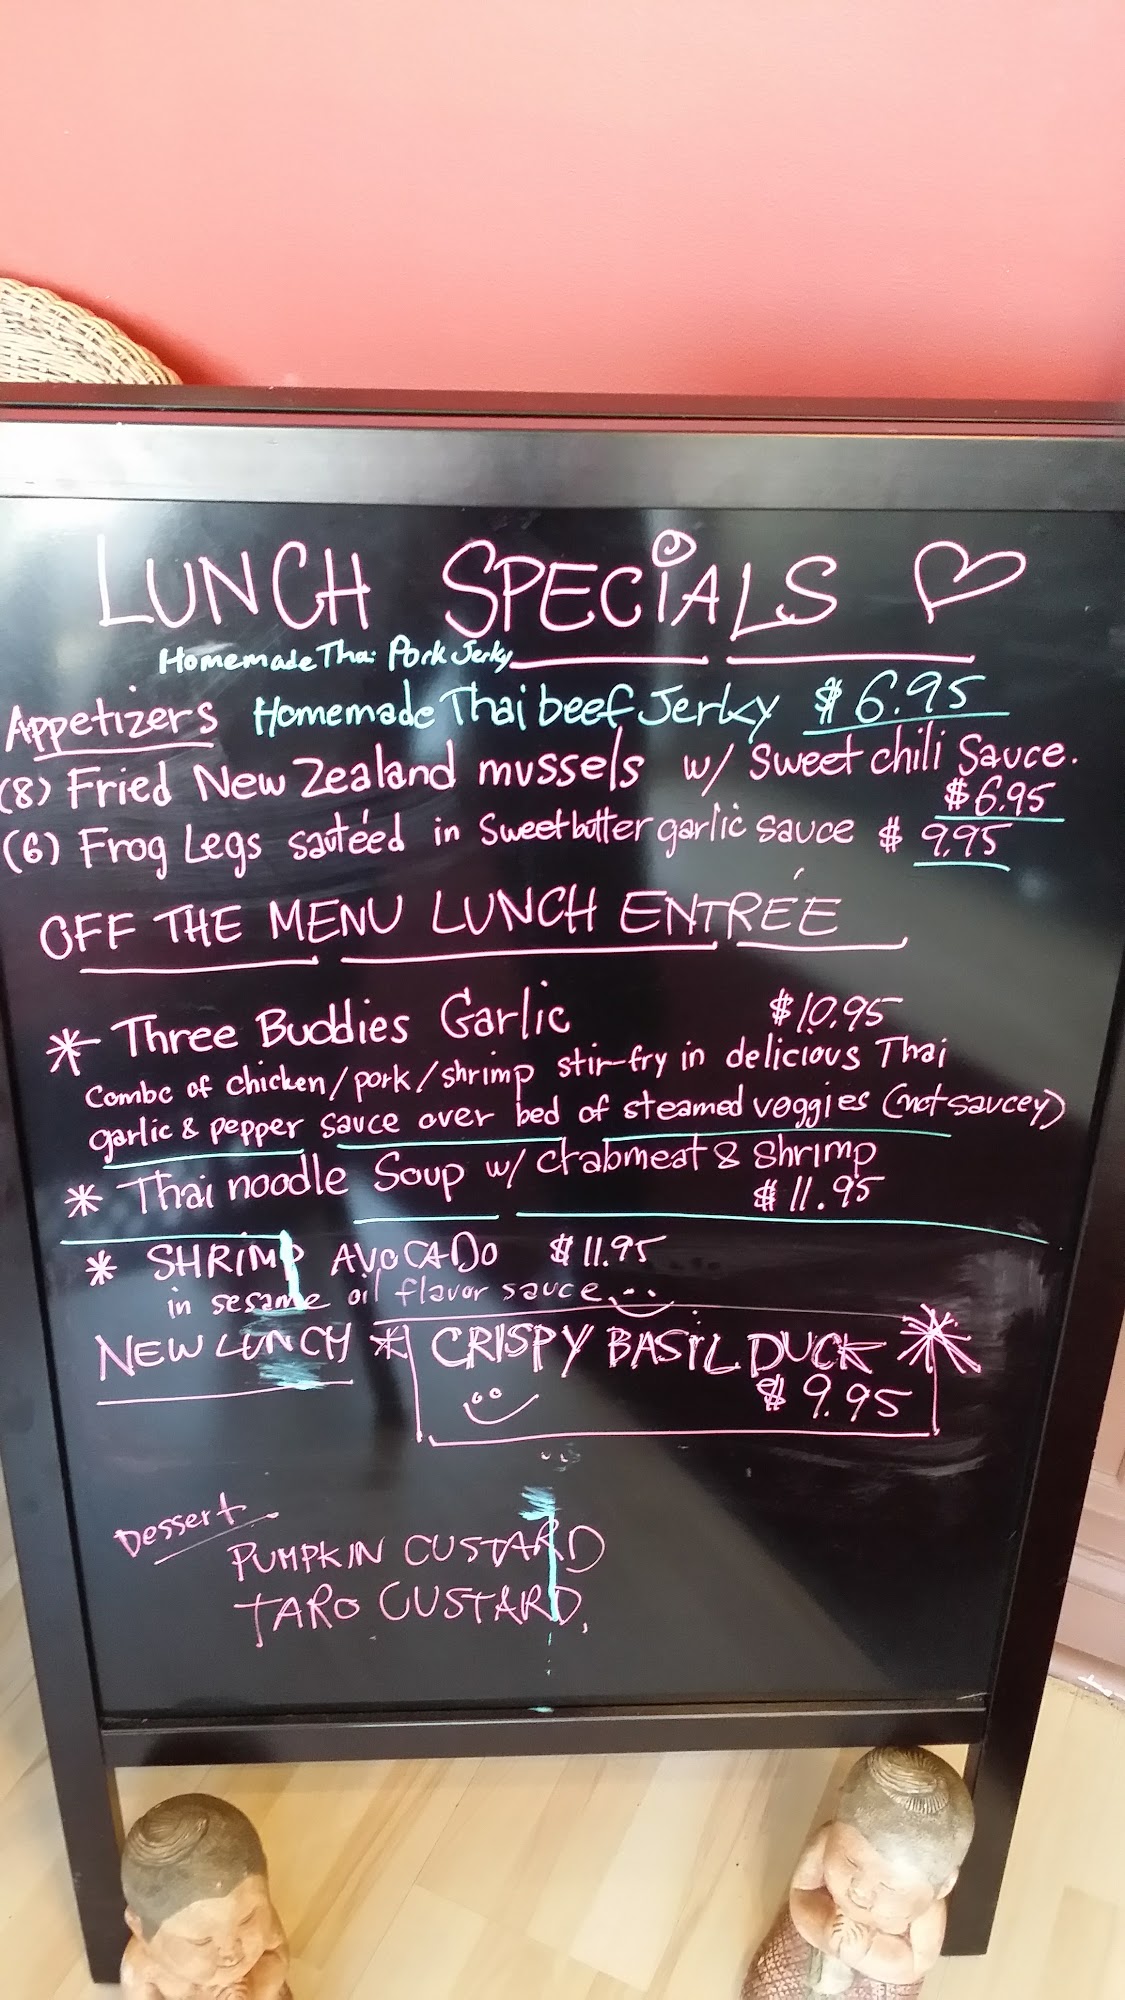 LUNCH SPECiALS
Homemade Thai Pork Jerky
Appetizers Homemade Thai beef Jerky $6.95
(8) Fried New Zealand mussels w/ Sweet chili Sauce.
$6.95
(6) Frog Legs sautéed in Sweet butter garlic sauce $ 9.95
OFF THE MENU LUNCH ENTRÉE
* Three Buddies Garlic $10.95
Combo of chicken/pork/shrimp stir-fry in delicious Thai
garlic & pepper sauce over bed of steamed veggies (not saucey)
* Thai noodle Soup w/ crabmeat & Shrimp
$11.95
* SHRiMP AVOCADO $11.95
in sesame oil flavor sauce
NEW LUNCH * CRISPY BASiL DUCK *
$9.95
Dessert
PUMPKIN CUSTARD
TARO CUSTARD,